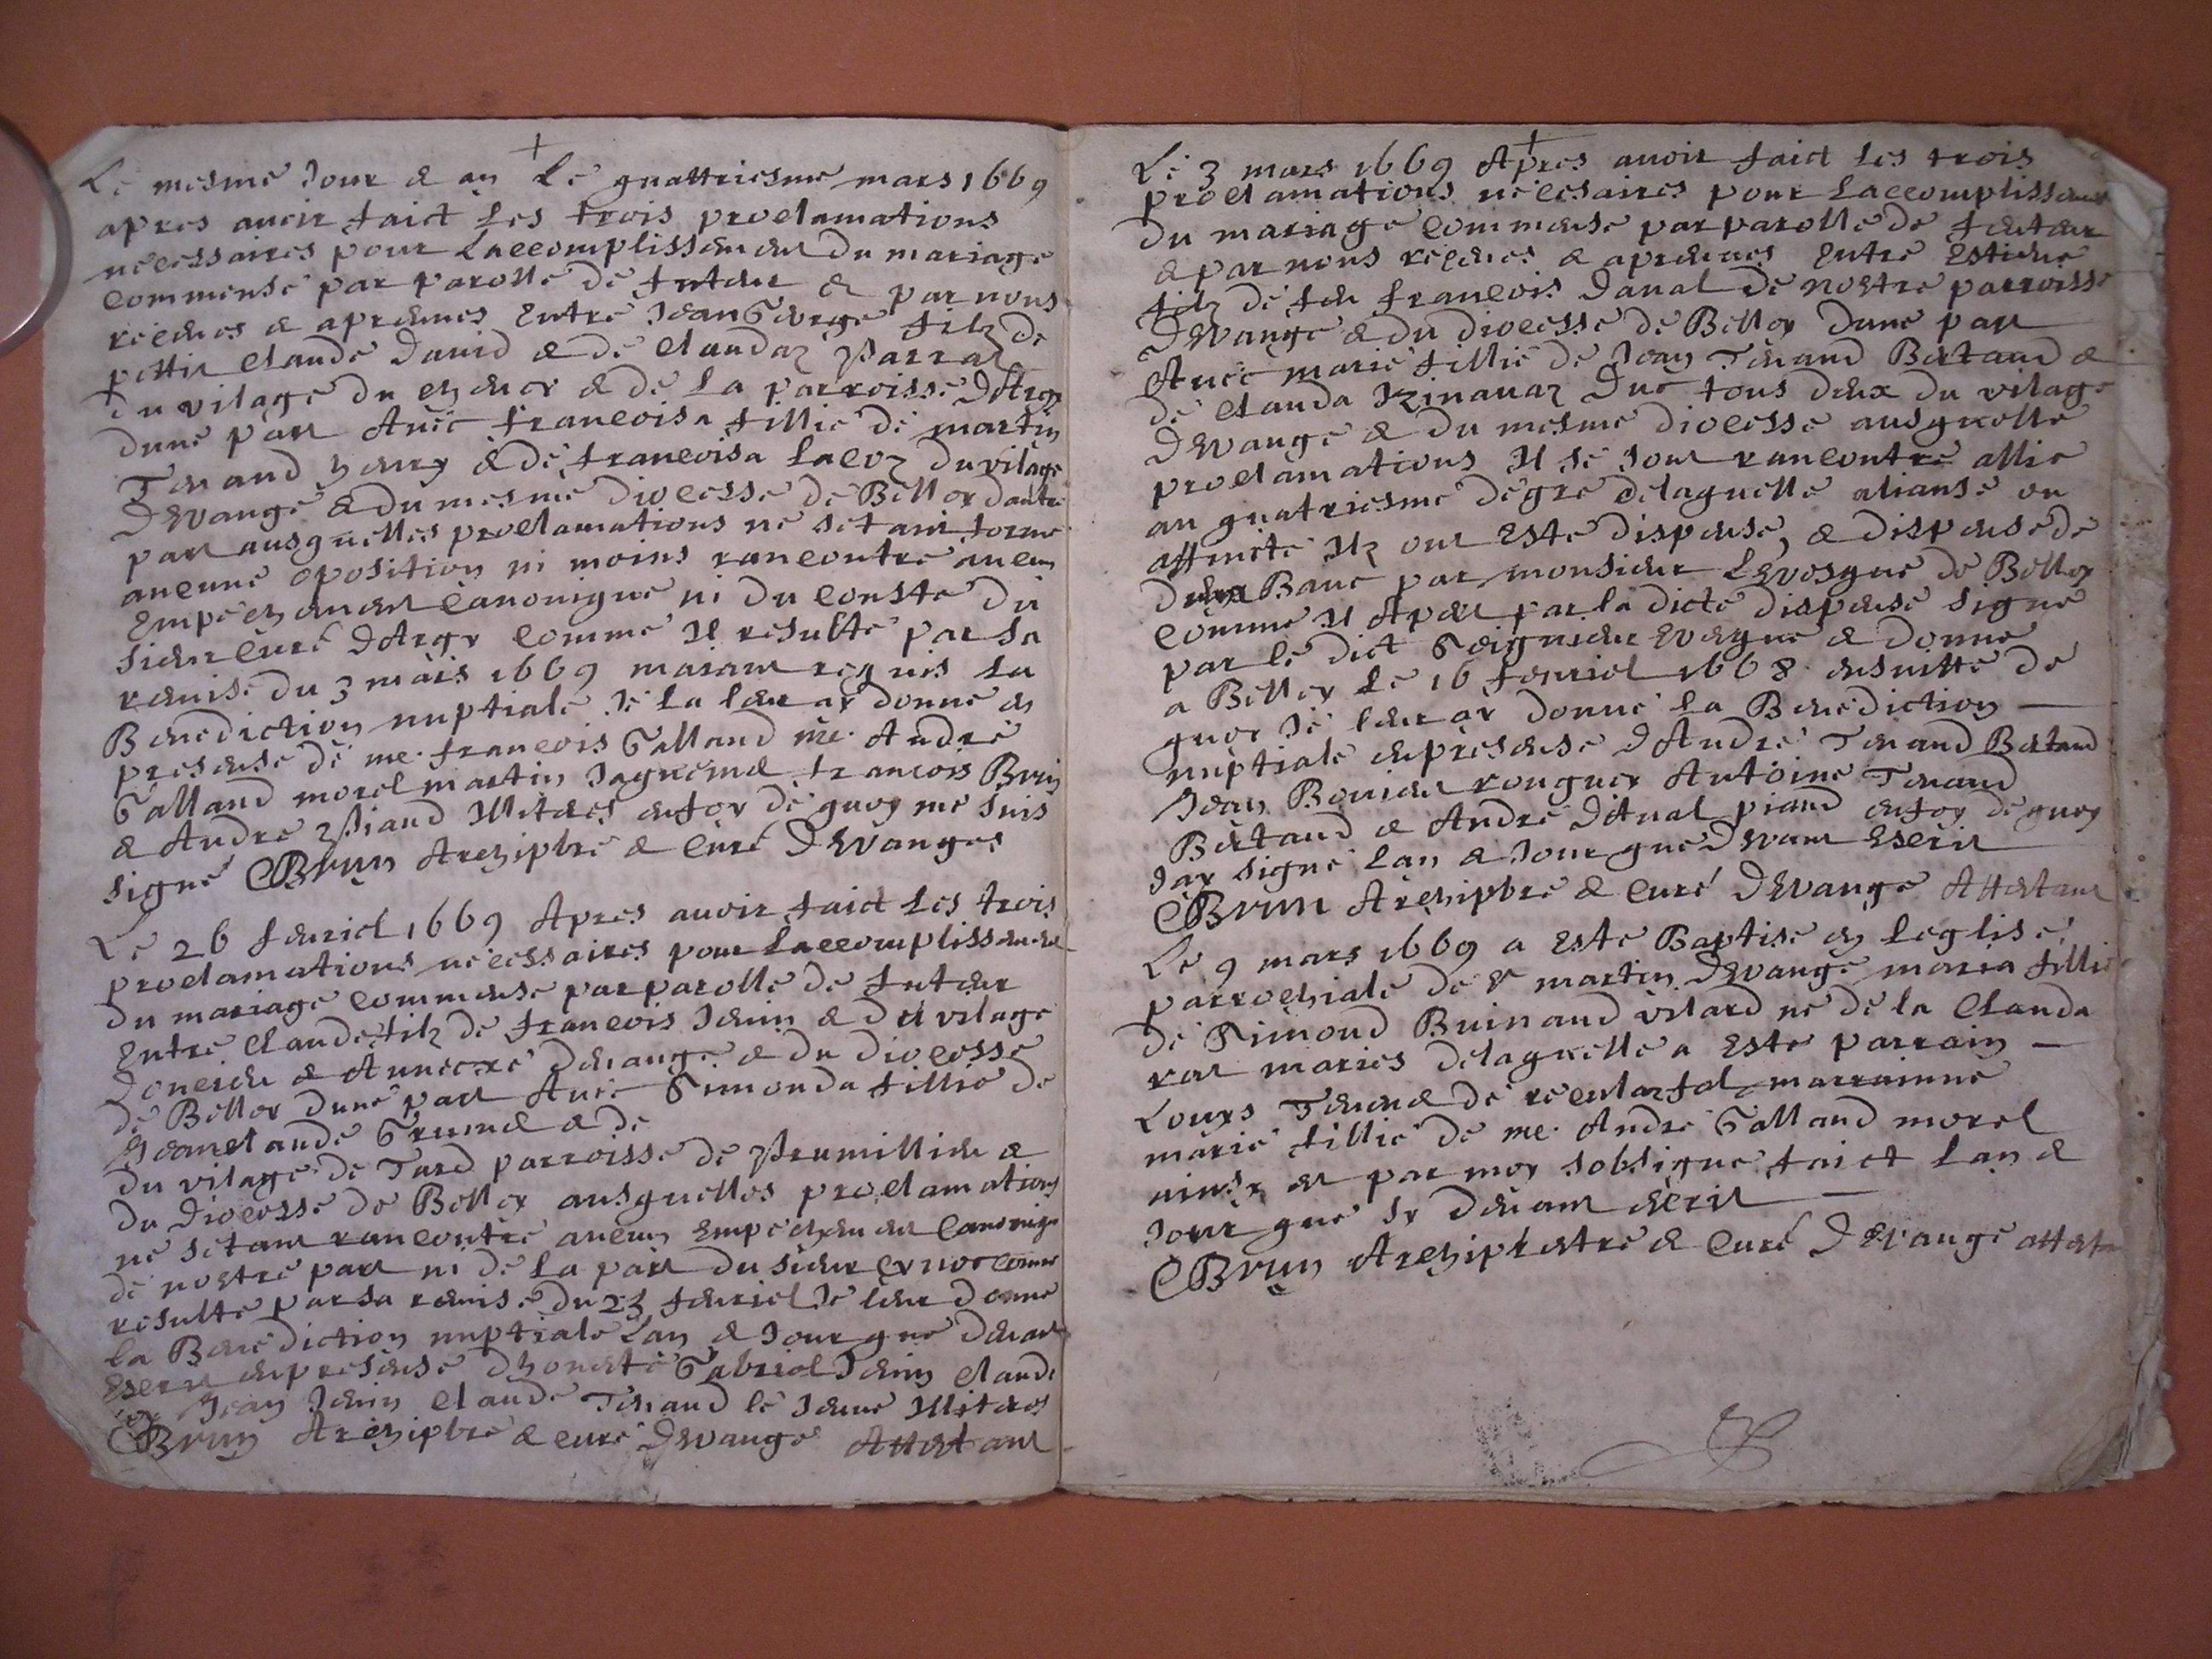 Le mesme Jour & an Le quattriesme mars 1669
apres avoir faict Les trois proclamations
necessaires pour Laccomplissement du mariage
commense par parolle de futeur & par nous
receues & apreuues Entre Jean George filz de
pettit claude David & de claudaz
du vilage du & de La parroisse dArgy
dune part Avec francoisa fillie de martin
Tenand henry & de francoisa du vilage
devange & du mesme diocesse de Belley dautre
part ausquelles proclamations ne setant forme
aucune oposition ni moins rancontre aucun
Empechement canonique ni du conste du
sieur curé dArgy comme Il resulte par sa
remise du 3 mars 1669 maiant requis La
Benediction nuptiale Je La Leur ay donné en
presense de me. francois Galland me. André
Galland morel martin Jaquemet francois Brun
& André Illitrés en foy de quoy me suis
signé Brun Archipbre & curé devanges
Le 26 feuriel 1669 Apres avoir faict Les trois
proclamations necessaires pour Laccomplissement
du mariage commense par parolle de futeur
Entre claude filz de francois Jenin & du vilage
& devange & du diocesse
de Belley dune part Avec Simonda fillie de
Jeanclaude & de
du vilage de parroisse de Prumillieu &
du diocesse de Belley ausquelles proclamations
ne setant rancontre aucun Empechement canonique
de nostre part ni de La part du sieur comme
resulte par sa remise du 23 feuriel Je leur donne
La Benediction nuptiale Lan & Jour que devant
Escrit en presense dhoneste Gabriel Jenin claude
Jean Jenin claude Tenand le Jeune Illitrés
Brun Archipbre & curé devange Attestant
Le 3 mars 1669 Apres avoir faict Les trois
proclamations necesaires pour Laccomplissement
du mariage commense par parolle de feuteur
& par nous receues & apreuues Entre Estiene
filz de feu francois danal de nostre parroisse
devange & du diocesse de Belley dune part
Avec marie fillie de Jean Tenand Bertand &
de clauda duc tous deux du vilage
devange & du mesme diocesse ausquelle
proclamations Il se sont rancontre allie
au quatriesme degre delaquelle alianse ou
affinite Ilz ont Este dispensé, & dispense de
deux Banc par monsieur Levesque de Belley
comme Il Apert par la dicte dispense signé
par le dict Seigneur Evesque & donne
a Belley Le 16 feuriel 1668 ensuitte de
quoy Je leur ay donné La Benediction
nuptiale en presense dAndre Tenand Bertand
Jean Bouuier Antoine Tenand
Bertand & Andre dAnal piand en foy de quoy
Jay signé Lan & Jour que devant Escrit
Brun Archipbre & curé devange Attestant
Le 9 mars 1669 a Este Baptise en Leglise
parrochiale de St martin devange maria fillie
de Simond Buinand vilard né de la clauda
maries delaquelle a Este parrain
Louys Tenand de marrainne
marie fillie de me. André Galland morel
ainsy est par moy sobsigne faict Lan &
Jour que sy devant escrit
Brun Archipbestre & curé devange attestant